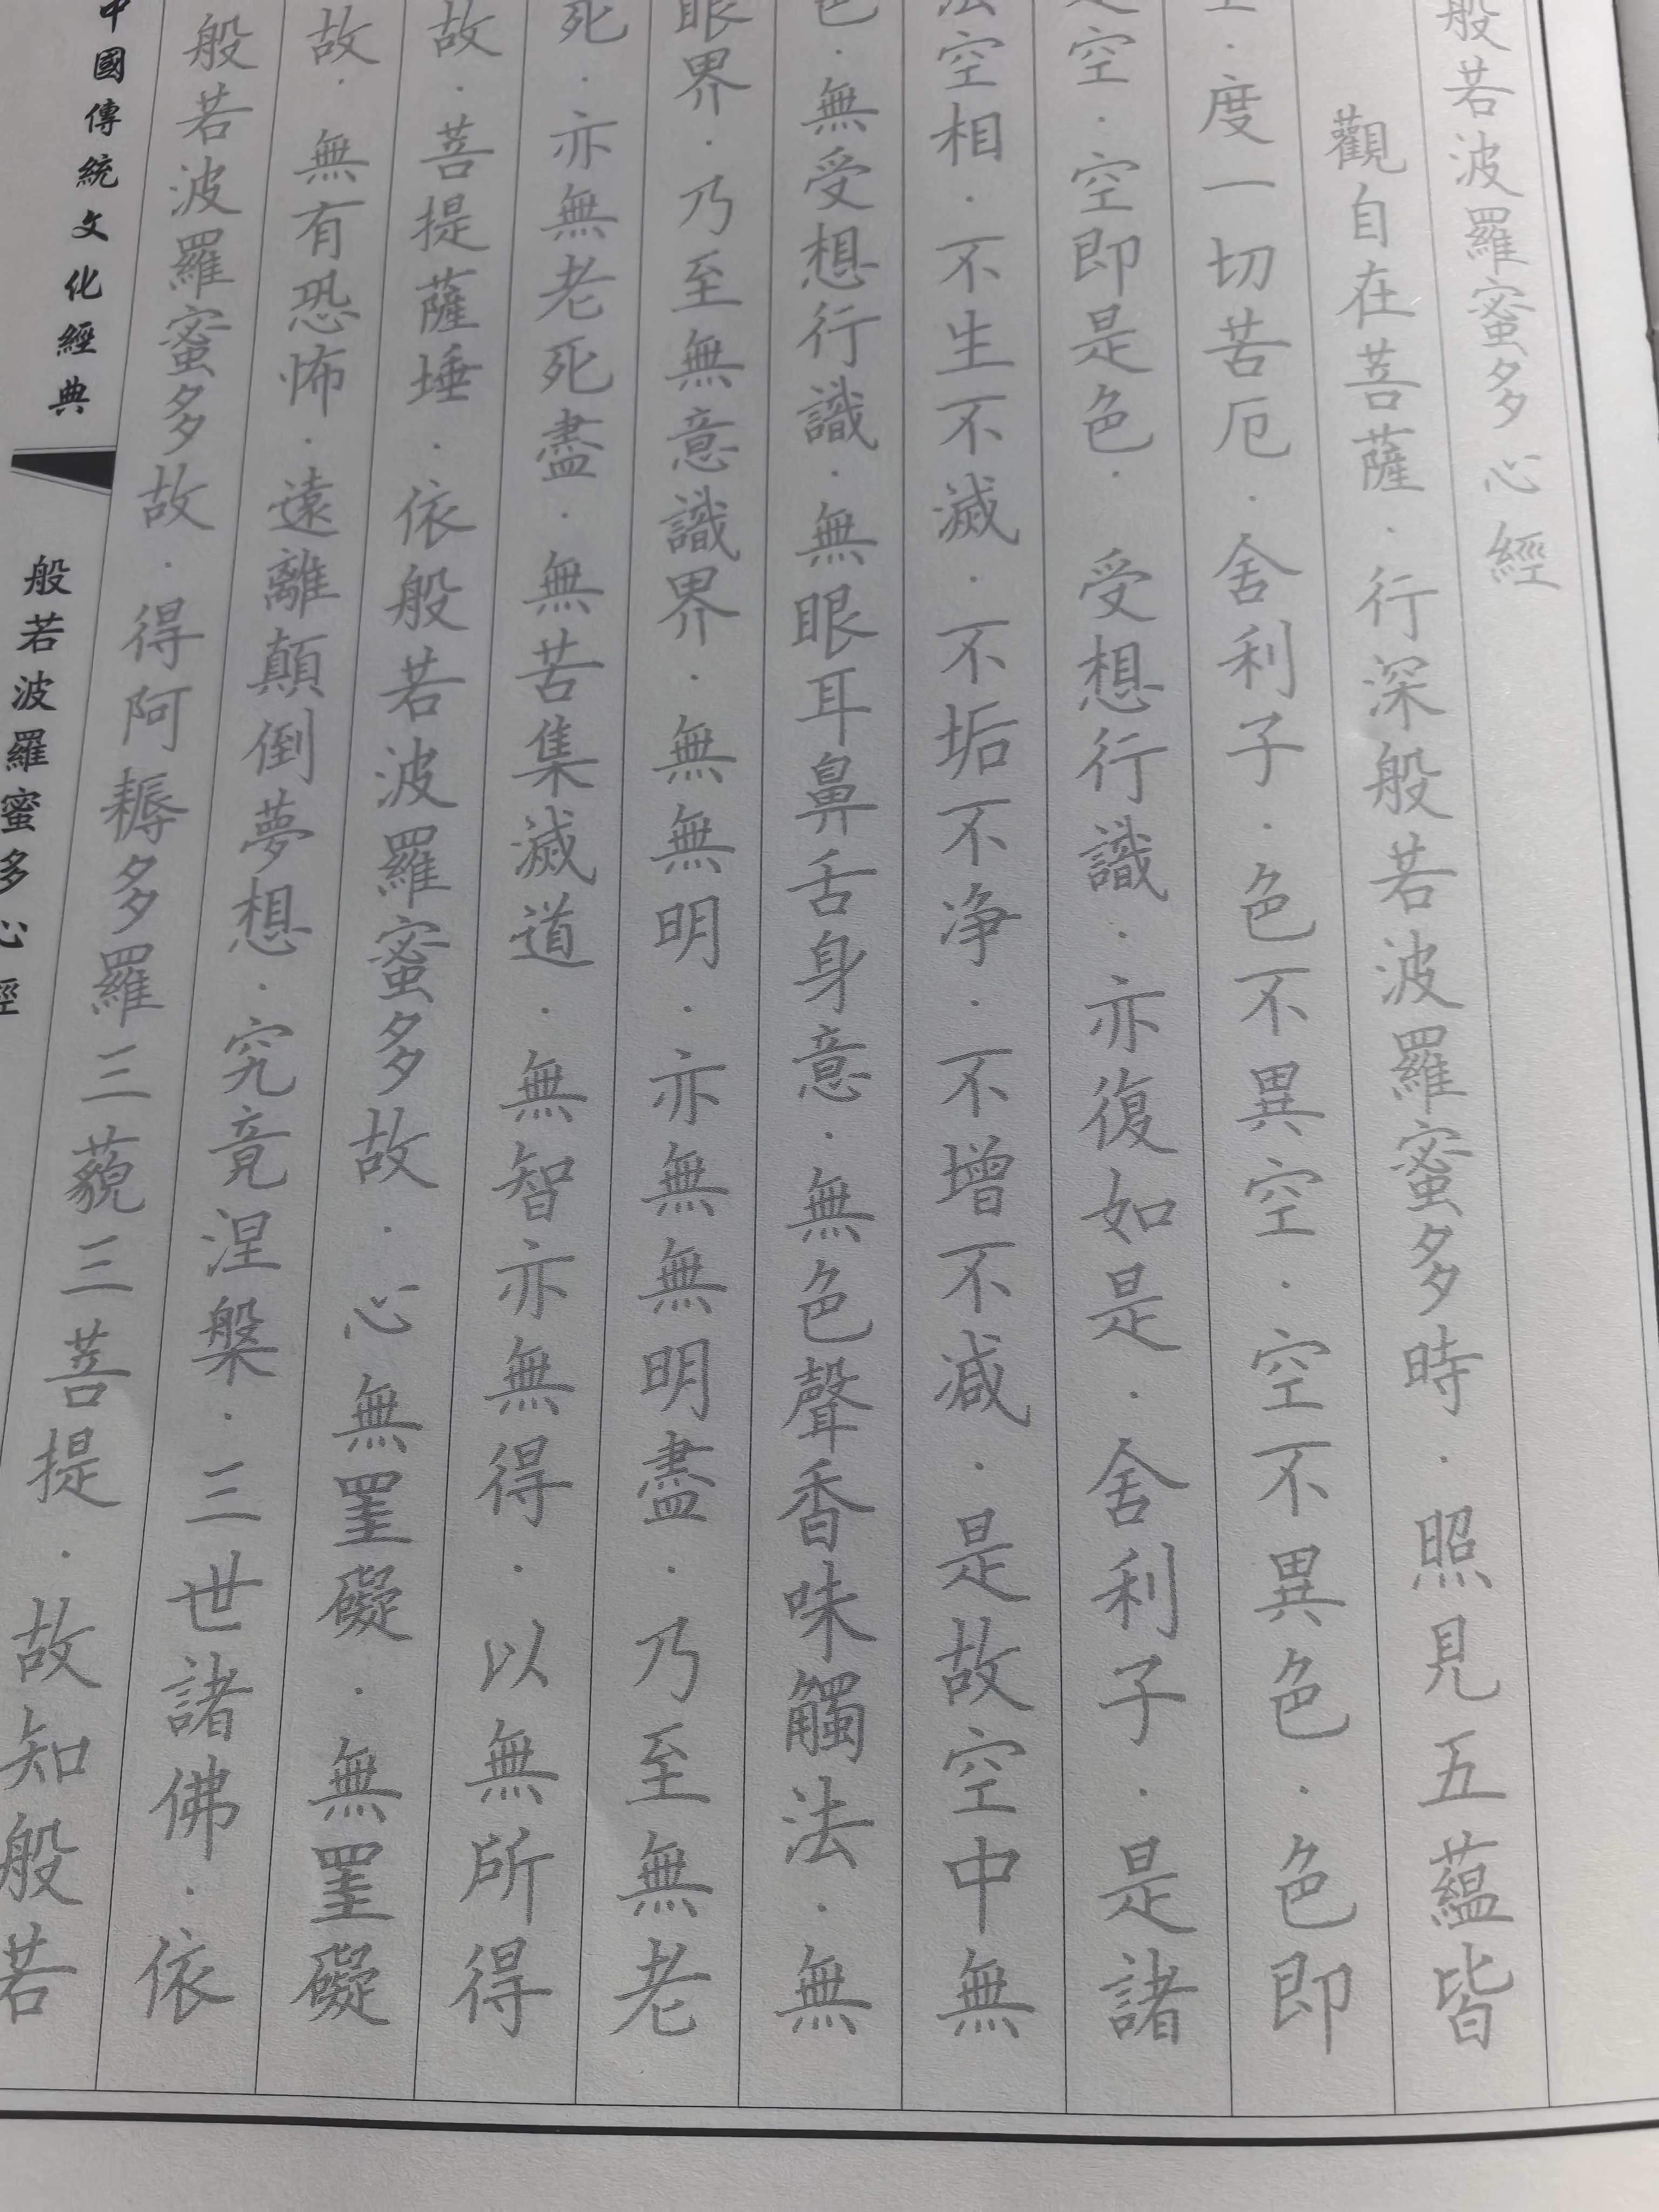 般若波羅蜜多心經
觀自在菩薩·行深般若波羅蜜多時·照見五蘊皆
·度一切苦厄·舍利子·色不異空·空不異色·色即
空·空即是色·受想行識·亦復如是·舍利子·是諸
法空相·不生不滅·不垢不净·不增不减·是故空中無
色·無受想行識·無眼耳鼻舌身意·無色聲香味觸法·無
眼界·乃至無意識界·無無明·亦無無明盡·乃至無老
死·亦無老死盡·無苦集滅道·無智亦無得·以無所得
故·菩提薩埵·依般若波羅蜜多故·心無罣礙·無罣礙
故·無有恐怖·遠離顛倒夢想·究竟涅槃·三世諸佛·依
般若波羅蜜多故·得阿耨多羅三藐三菩提·故知般若
中國傳統文化經典
般若波羅蜜多心經